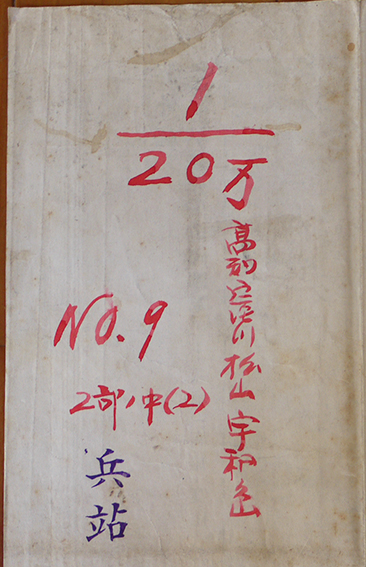 1/20万
高知 窪川 松山 宇和島
No. 9
2部ノ中(2)
兵站